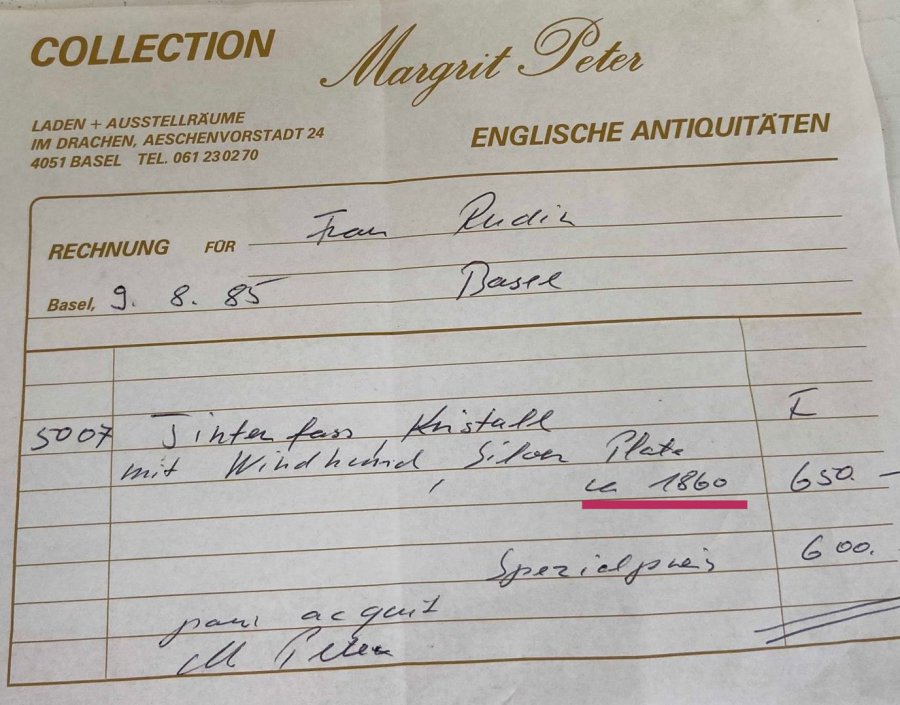 COLLECTION
Margrit Peter
LADEN + AUSSTELLRÄUME
IM DRACHEN, AESCHENVORSTADT 24
4051 BASEL TEL. 061 23 02 70
ENGLISCHE ANTIQUITÄTEN
RECHNUNG FÜR Frau Rudin
Basel, 9. 8. 85 Basel
5007 Tintenfass Kristall
mit Windhund, Silver Plate
ca 1860 650.-
Spezialpreis 600.
pour acquit
M Peter